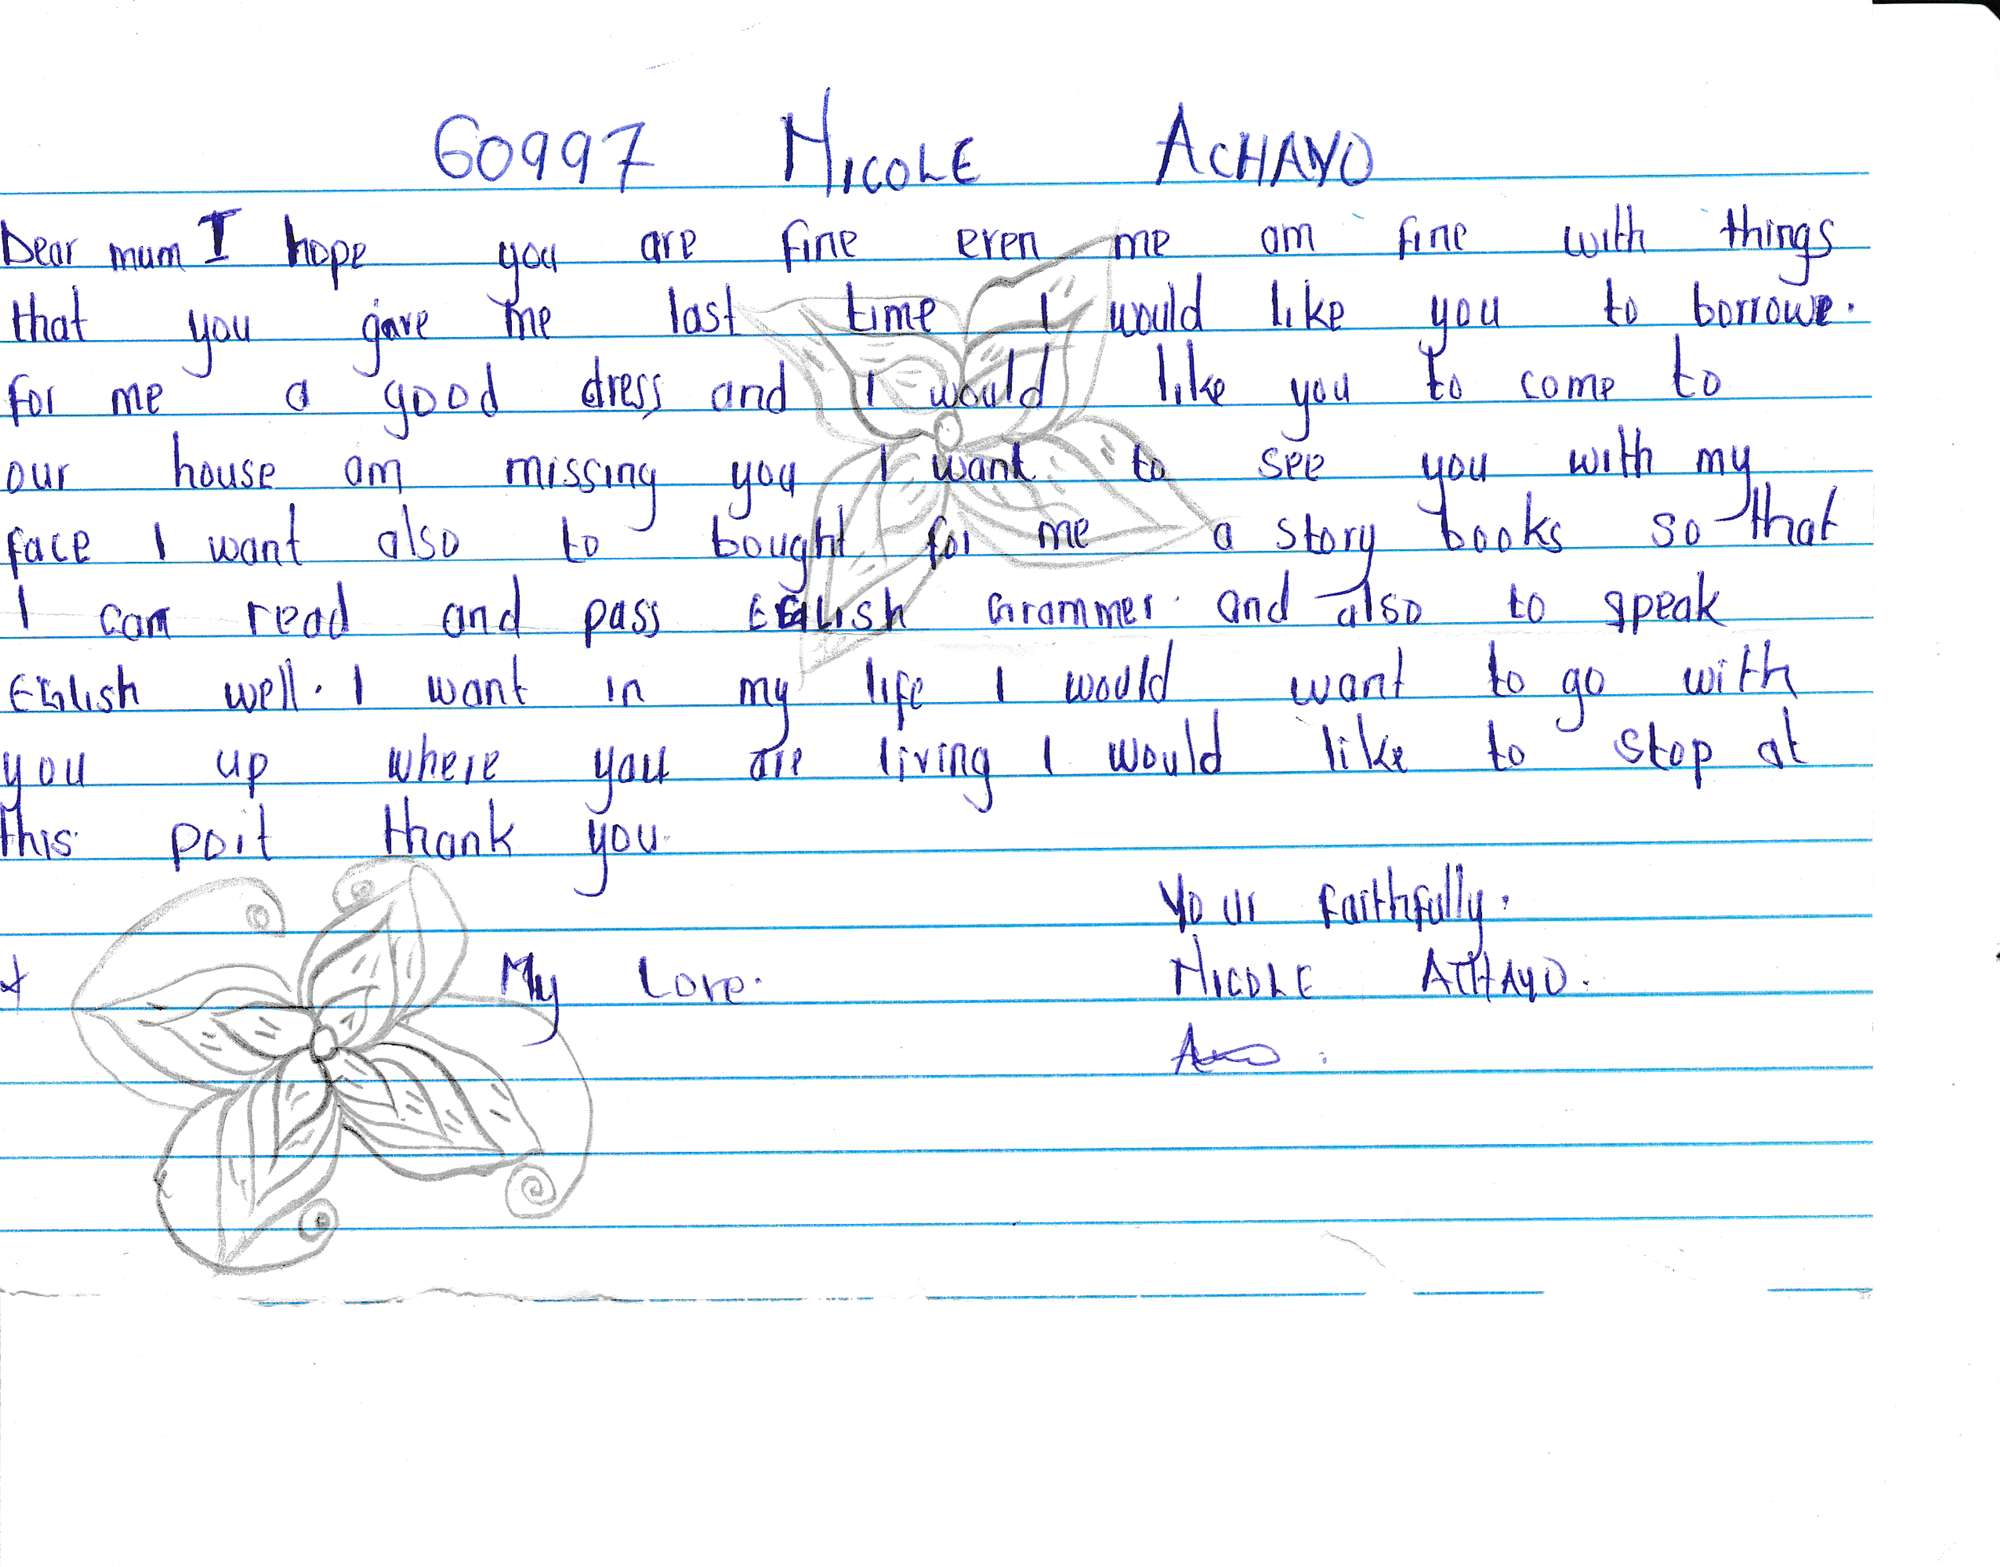 60997 NICOLE ACHAYO
Dear mum I hope you are fine even me am fine with things
that you gave me last time I would like you to borrowe.
for me a good dress and I would like you to come to
our house am missing you I want to see you with my
face I want also to bought for me a story books so that
I can read and pass EGLISH Grammer. and also to speak
EGLISH well. I want in my life I would want to go with
you up where you are living I would like to stop at
this poit thank you.
Your faithfully.
My Love. NICOLE ATHAYO.